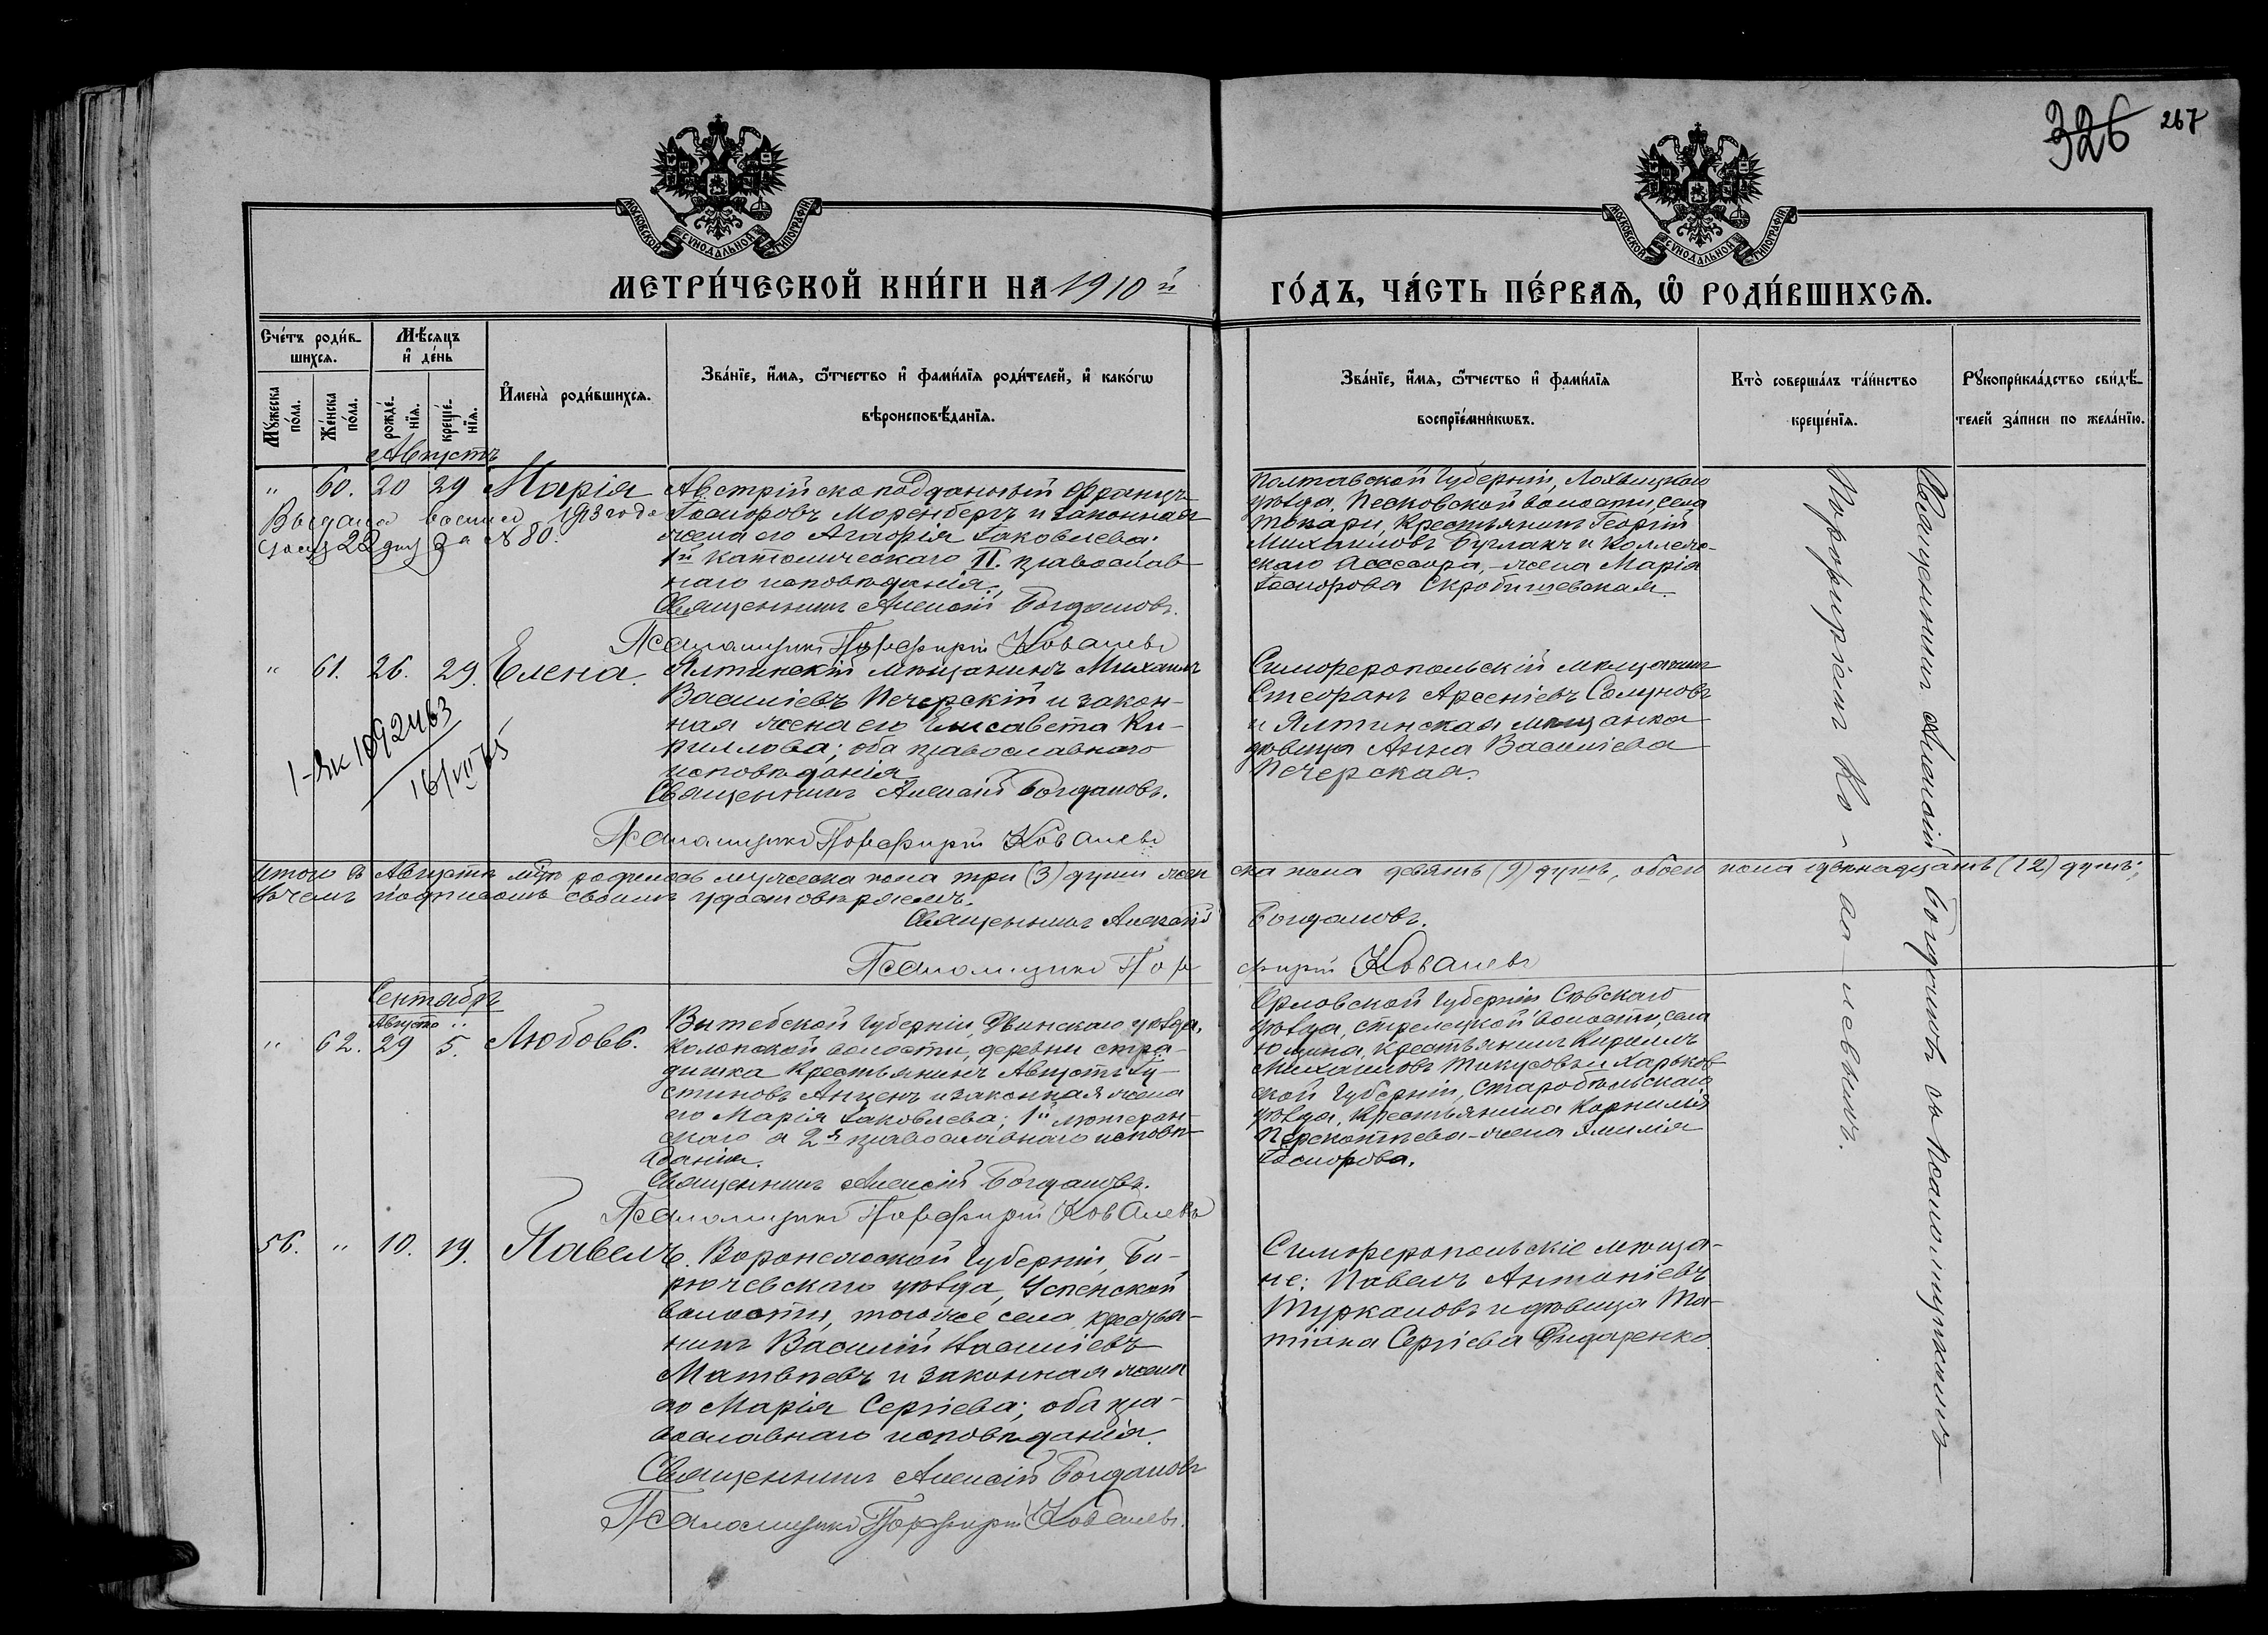 326 267
МОСКОВСКОЙ СѴНОДАЛЬНОЙ ТИПОГРАФІИ
МОСКОВСКОЙ СѴНОДАЛЬНОЙ ТИПОГРАФІИ
МЕТРИ́ЧЕСКОЙ КНИ́ГИ НА 1910 й
ГО́ДЪ, ЧА́СТЬ ПЕ́РВАѦ, Ѡ҆ РОДИ́ВШИХСѦ.
Сче́тъ роди́в-
шихсѧ.
Мꙋ́жеска по́ла.
Же́нска по́ла.
Мѣ́сѧцъ
и҆ де́нь
рожде́-
нїѧ.
креще́-
нїѧ.
И҆мена̀ роди́вшихсѧ.
Зва́нїе, и҆́мѧ, ѻ҆́тчество и҆ фами́лїѧ роди́телей, и҆ како́гѡ
вѣроисповѣ́данїѧ.
Зва́нїе, и҆́мѧ, ѻ҆́тчество и҆ фами́лїѧ
воспрїе́мникѡвъ.
Кто̀ соверша́лъ та́инство
креще́нїѧ.
Рꙋкоприкла́дство свидѣ́-
телей за́писи по жела́нїю.
Августъ
" 60. 20 29 Марія
Выдана 1913 года
22 за № 80.
Австрійско подданный Францъ
Іосифовъ Моренбергъ и законная
жена его Агафія Іаковлева:
1й католическаго II. православ-
наго исповѣданія.
Священникъ Алексій Богдановъ.
Псаломщикъ Порфирій Ковалевъ
Полтавской губерніи, Лохвицкаго
уѣзда, Песковской волости, села
Токари, Крестьянинъ Георгій
Михайловъ Бурлакъ и Коллеж-
скаго Асессора, - жена Марія
Іосифова Скробишевская.
" 61. 26. 29. Елена.
1-ЯК 1092463
16/VII 65
Ялтинскій мѣщанинъ Михаилъ
Василіевъ Печерскій и закон-
ная жена его Елисавета Ки-
риллова; оба православнаго
исповѣданія
Священникъ Алексій Богдановъ.
Псаломщикъ Порфирій Ковалевъ
Симферопольскій мѣщанинъ
Стефанъ Арсеніевъ Солуновъ
и Ялтинская мѣщанка
дѣвица Анна Василіева
Печерская.
Итого въ Августѣ мѣс. родилось мужеска пола три (3) души жен
ска пола девять (9) душъ, обоего пола двѣнадцать (12) душъ;
въ чемъ подписомъ своимъ удостовѣряемъ.
Священникъ Алексій
Богдановъ.
Псаломщикъ Пор
фирій Ковалевъ
Сентябрь
Августъ "
" 62. 29 5. Любовь.
Витебской губерніи, Двинскаго уѣзда,
волости, деревни
крестьянинъ Августъ
и законная жена
его Марія Іаковлева; 1й лютеран-
скаго а 2я православнаго исповѣ-
данія.
Священникъ Алексій Богдановъ.
Псаломщикъ Порфирій Ковалевъ
Орловской губерніи Сѣвскаго
уѣзда, Стрелецкой волости, села
Юшина, крестьянинъ Кириллъ
Михаиловъ и Харьков-
ской губерніи, Старобѣльскаго
уѣзда, Крестьянина Корнилія
жена
Іосифова.
56. " 10. 19. Павелъ.
Воронежской губерніи, Би-
рючевскаго уѣзда, Успенской
волости, того же села крестья-
нинъ Василій Василіевъ
Матвѣевъ и законная жена
его Марія Сергіева; оба пра-
вославнаго исповѣданія.
Священникъ Алексій Богдановъ
Псаломщикъ Порфирій Ковалевъ.
Симферопольскіе мѣща-
не: Павелъ Антоніевъ
Туркановъ и дѣвица Та-
тіана Сергіева
Священникъ Алексій Богдановъ съ Псаломщикомъ
Порфиріемъ Ко-ва-левымъ.